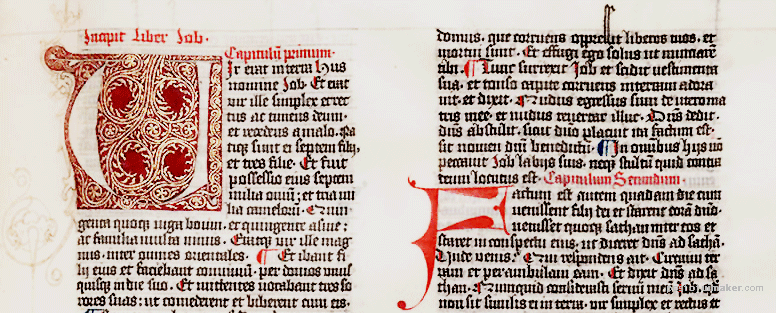 Incipit Liber Job.
Capitulũ primum.
Ir erat in terra hus
nomine Job. Et erat
vir ille simplex et rec
tus ac timens deum.
et recedens a malo. Na
tiq; sunt ei septem filij,
et tres filie. Et fuit
possessio eius septem
milia oviũ; et tria mi
lia camelorũ. Quin
genta quoq; iuga bouum. et quingente asine:
ac familia multa nimis. Eratq; vir ille mag
nus. inter omnes orientales. Et ibant fi
lij eius et faciebant conuiuiũ. per domos unus
quisq; in die suo. Et mittentes vocabant tres so
rores suas: ut comederent et biberent cum eis.
domus. que corruens oppressit liberos tuos. et
mortui sunt. Et effugi ego solus ut nunciarem
tibi. Tunc surrexit Job et scidit vestimenta
sua. et tonso capite corruens in terram adora
uit. et dixit. Nudus egressus sum de utero ma
tris mee. et nudus reuertar illuc. Dñs dedit.
dñs abstulit. sicut dño placuit ita factum est.
sit nomen dñi benedictũ. In omnibus hijs nõ
peccauit Job labijs suis. neq; stultũ quid contra
deum locutus est. Capitulum Secundum.
Factum est autem quadam die cum
venissent filij dei et starent corã dño.
venisset quoq; sathan inter eos et
staret in conspectu eius. ut diceret dñs ad sathã.
Unde venis? Qui respondens ait. Circuiui ter
ram et perambulaui eam. Et dixit dñs ad sa
than. Nunquid considerasti seruũ meũ Job.
non sit similis ei in terra. vir simplex et rectus et